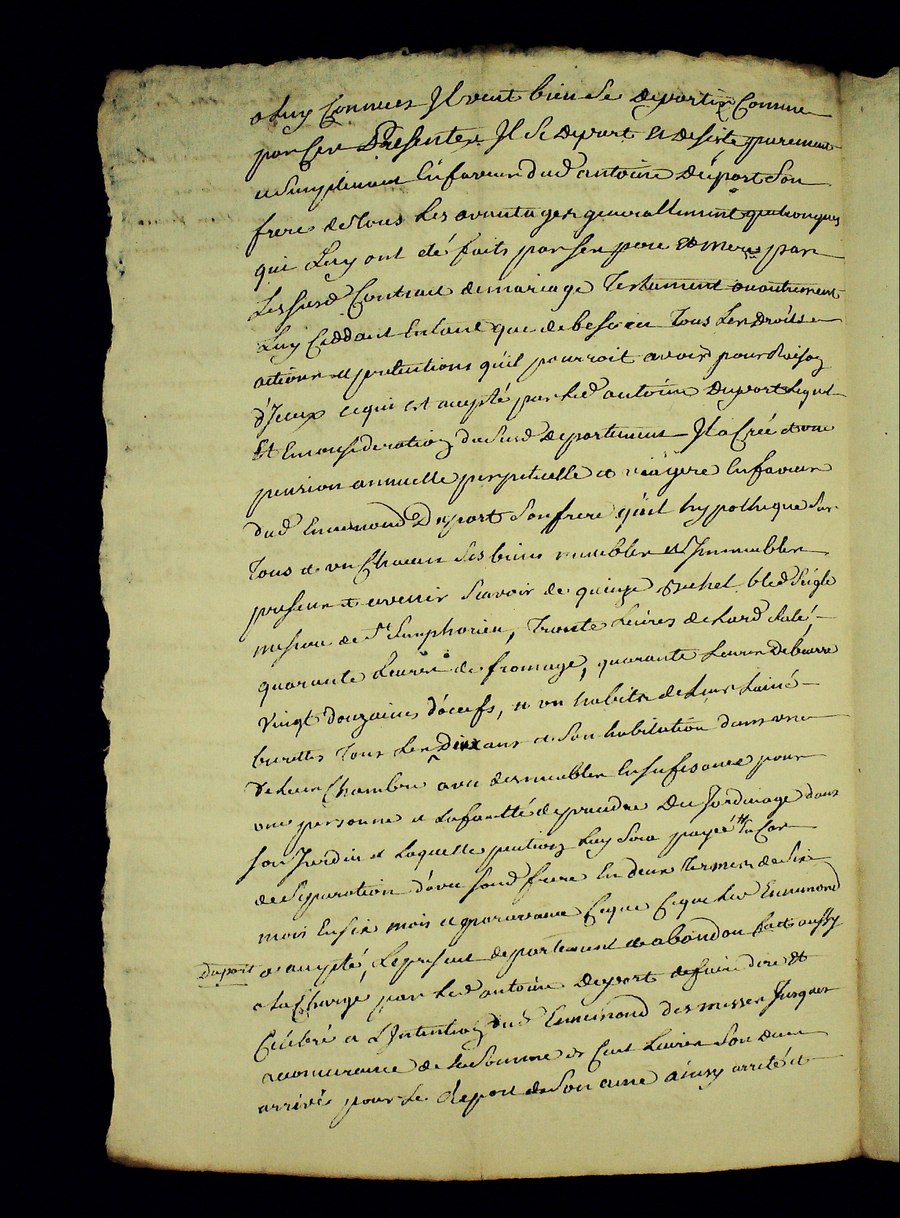 a luy connues Il veut bien se departir comme
par ces Presentes Il se depart et desiste purement
et simplement En faveur dud antoine Duport son
frere de tous les avantages generallement quelconques
qui luy ont eté faits par ses pere et mere par
Lessusd Contrat de mariage Testament ou autrement
Luy Ceddant Entant que de besoin tous les Droits
actions et pretentions qu'il pourroit avoir pour Raison
d'Iceux ce qui est accepté par led antoine Duport lequel
Et En consideration du susd departement Il a Créé et une
pension annuelle perpetuelle et viagere En faveur
dud Ennemond Duport son frere qu'il hypotheque sur
tous et un Chacun ses biens meubles et Immeubles
presens et avenir scavoir de quinze bichet bled seigle
mesure de St Simphorien, Trente Livres de Lard salé
quarante Livres de fromage, quarante Livres de beurre
vingt douzaines d'oeufs, et un habits de
tous les Dix ans et son habitation dans une
Chambre avec des meubles En sufisance pour
une personne et La faculté de prendre Du Jardinage dans
son Jardin et Laquelle pention Luy sera payeé En Cas
de separation d'avec sond frere En deux termes de six
mois En six mois et par avance Ceque led Ennemond
Duport a accepté, Le present departement et abandon fait aussy
a la Charge par led antoine Duport de faire dire et
Celebré a L'Intention dud Ennemond des messes Jusques
a concurance de la somme de Cent Livres son deces
arrivé pour le Repos de son ame ainsy arrêté et